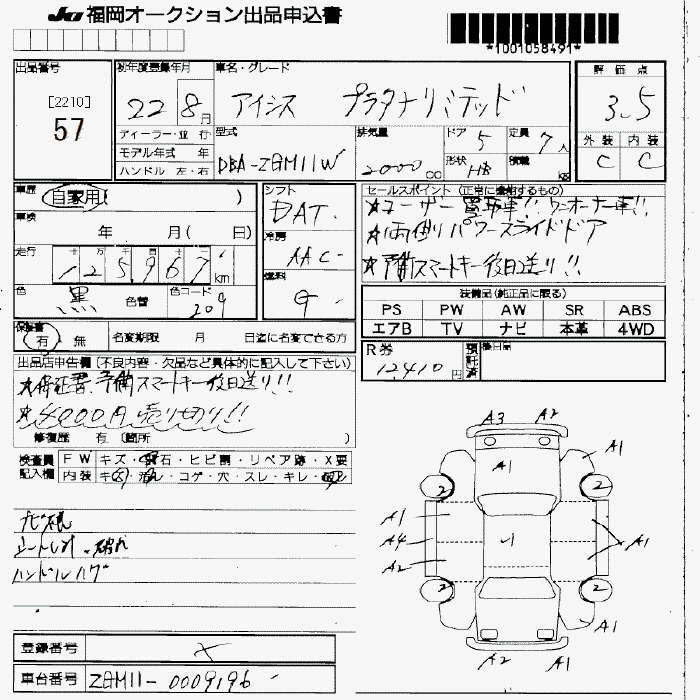 JU 福岡オークション出品申込書
*1001058491*
出品番号 [2210] 57
初年度登録年月 22 8月
ディーラー・並 行
モデル年式 年
ハンドル 左・右
車名・グレード アイシス プラタナリミテッド
型式 DBA-ZGM11W
排気量 2000 cc
ドア 5
形状 HB
定員 7人
積載 kg
評価点 3.5
外装 内装
C C
車歴 自家用( )
車検 年 月( 日)
走行 125967 km
色 黒 色替 色コード 209
シフト DAT
冷房 AAC
燃料 G
セールスポイント (正常に機能するもの)
★ユーザー買取車!! ワンオーナー車!!
★両側パワースライドドア
★予備スマートキー後日送り!!
装備品(純正品に限る)
PS PW AW SR ABS
エアB TV ナビ 本革 4WD
保証書 有・無 名変期限 月 日迄に名変できる方
R券 12410円 預託済 後日品
出品店申告欄 (不良内容・欠品など具体的に記入して下さい)
★保証書、予備スマートキー後日送り!!
★4000円売り切り!!
修復歴 有 (箇所 )
検査員記入欄 FW キズ・飛石・ヒビ割・リペア跡・X要
内装 キズ・汚れ・コゲ・穴・スレ・キレ・
ナビ
シート
ハンドルハゲ
A3 A2
A1 A1
2 2
A1
A4 A1
A2
2 2
A1
A2 A1
登録番号 ×
車台番号 ZGM11-0009196